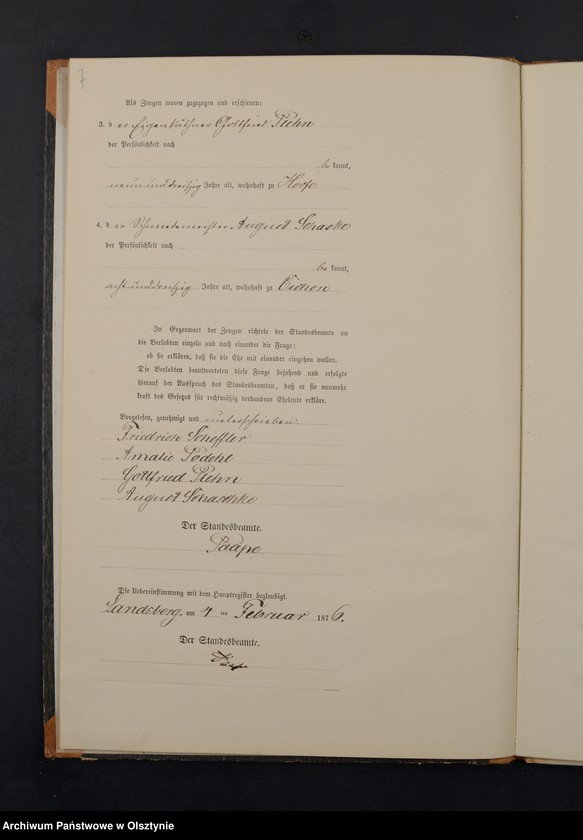 7
Als Zeugen waren zugezogen und erschienen:
3. d er Eigenkäthner Gottfried Plehn
der Persönlichkeit nach
be kannt,
neununddreißig Jahre alt, wohnhaft zu
4. d er Schmiedemeister August
der Persönlichkeit nach
be kannt,
acht unddreißig Jahre alt, wohnhaft zu
In Gegenwart der Zeugen richtete der Standesbeamte an
die Verlobten einzeln und nach einander die Frage:
ob sie erklären, daß sie die Ehe mit einander eingehen wollen.
Die Verlobten beantworteten diese Frage bejahend und erfolgte
hierauf der Ausspruch des Standesbeamten, daß er sie nunmehr
kraft des Gesetzes für rechtmäßig verbundene Eheleute erkläre.
Vorgelesen, genehmigt und unterschrieben.
Friedrich Scheffler
Amalie Podehl
Gottfried Plehn
August Schaschke
Der Standesbeamte.
Paape
Die Uebereinstimmung mit dem Hauptregister beglaubigt.
Landsberg, am 4 ten Februar 1876.
Der Standesbeamte.
Paape
Archiwum Państwowe w Olsztynie